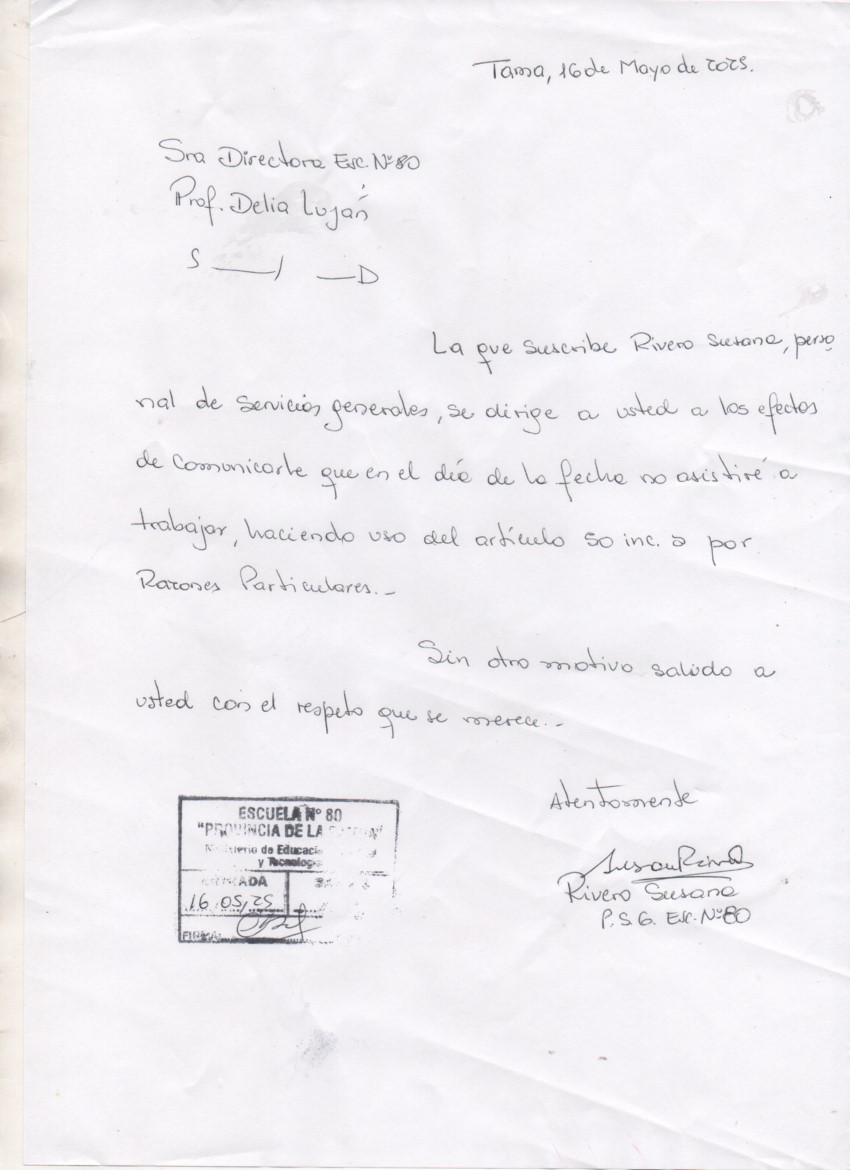 Tama, 16 de Mayo de 2025.
Sra Directora Esc. Nº 80
Prof. Delia Luján
S ——/ ——D
La que suscribe Rivero Susana, perso
nal de Servicios generales, se dirige a usted a los efectos
de comunicarle que en el día de la fecha no asistiré a
trabajar, haciendo uso del artículo 50 inc. 5 por
Razones Particulares.-
Sin otro motivo saludo a
usted con el respeto que se merece.-
Atentamente
Rivero Susana
P.S.G. Esc. Nº 80
ESCUELA Nº 80
"PROVINCIA DE LA
Ministerio de Educación
y Tecnología
ENTRADA
16 05/25
FIRMA: